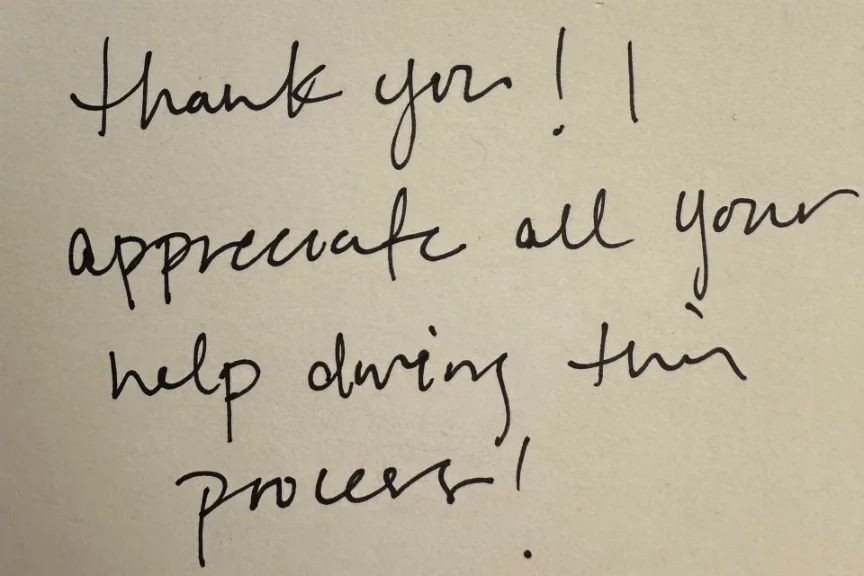 thank you! I
appreciate all your
help during this
process!